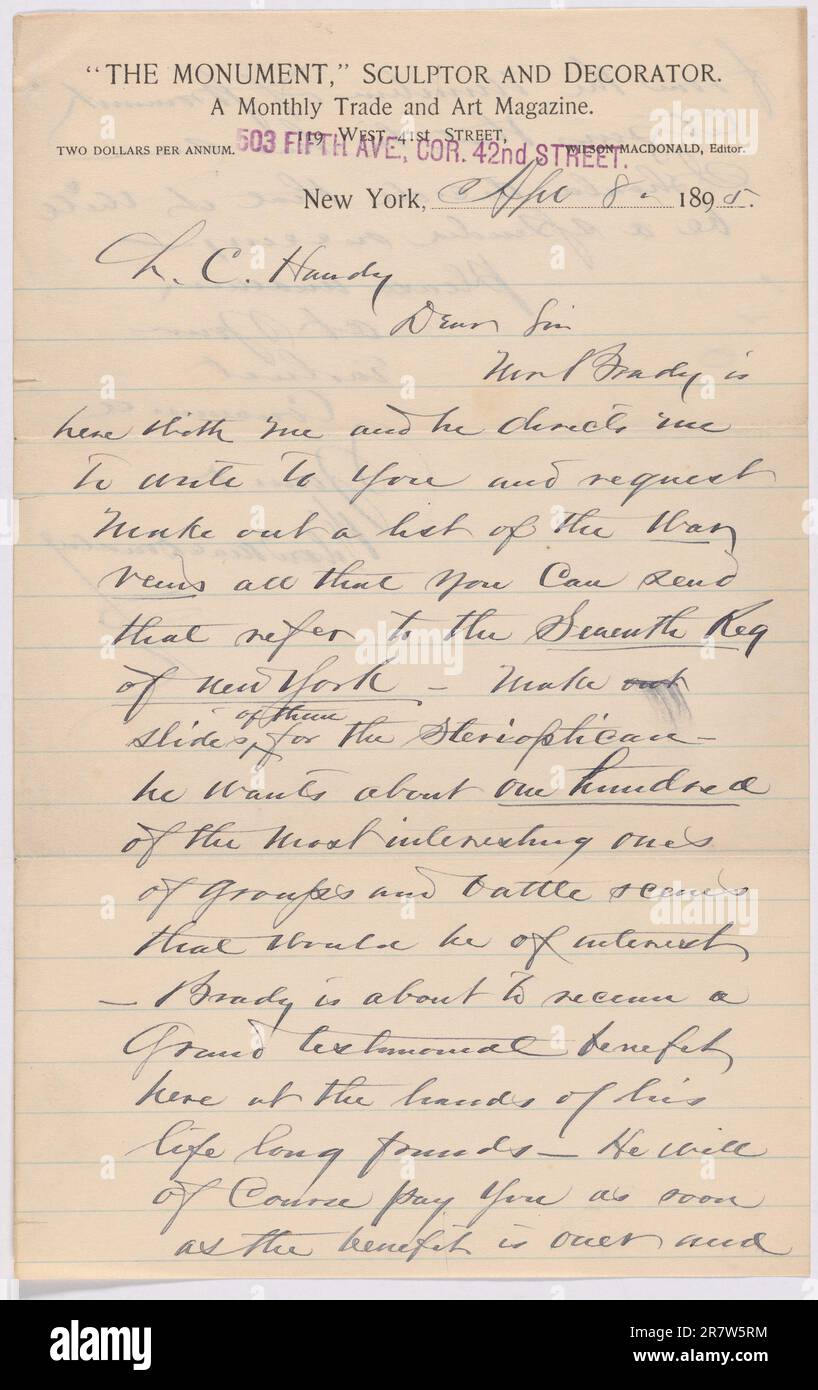 "THE MONUMENT," SCULPTOR AND DECORATOR.
A Monthly Trade and Art Magazine.
119 WEST 41st STREET,
503 FIFTH AVE, COR. 42nd STREET.
TWO DOLLARS PER ANNUM. WILSON MACDONALD, Editor.
New York, Apl 8. 1895.
L. C. Handy
Dear Sir
Mr Brady is
here with me and he directs me
to write to you and request
make out a list of the War
views all that you can send
that refer to the Seventh Reg
of New York – Make out
of them
slides, for the Sterioptican –
he wants about one hundred
of the most interesting ones
of groups and battle scenes
that would be of interest
– Brady is about to receive a
Grand testimonial benefit
here at the hands of his
life long friends – He will
of course pay you as soon
as the benefit is over and
alamy
alamy
Image ID: 2R7W5RM
www.alamy.com